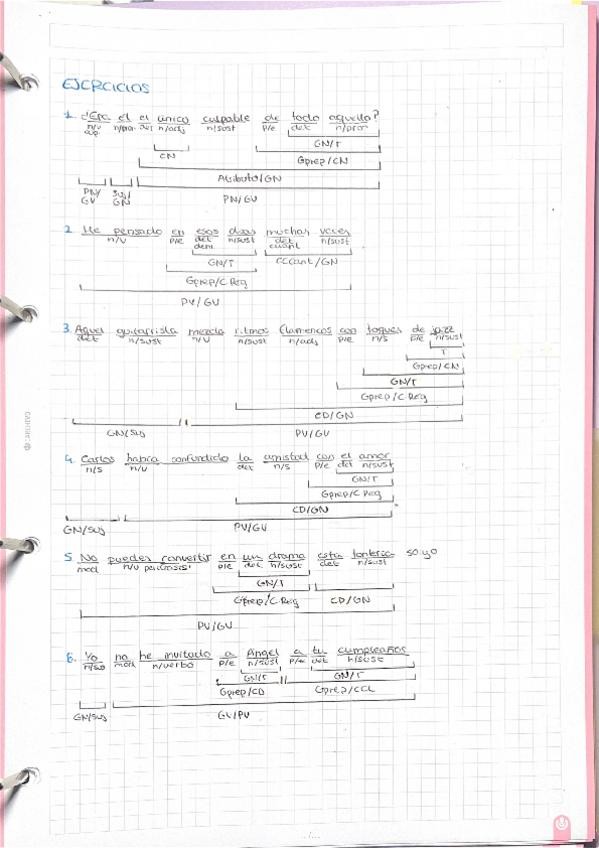 EJERCICIOS
1. ¿Era él el único culpable de todo aquello?
n/v cop n/pron det n/adj n/sust p/e det n/pron
CN GN/T
Gprep/CN
Atributo/GN
PN/GV Suj/GN PN/GV
2. He pensado en esos días muchas veces
n/v p/e det dem n/sust det cuant n/sust
GN/T CCCant/GN
Gprep/C Reg
PV/GV
3. Aquel guitarrista mezcla ritmos flamencos con toques de jazz
det n/sust n/v n/sust n/adj p/e n/s p/e n/sust
T
Gprep/CN
GN/T
Gprep/C Reg
CD/GN
GN/Suj PV/GV
4. Carlos había confundido la amistad con el amor
n/s n/v det n/s p/e det n/sust
GN/T
Gprep/C Reg
CD/GN
GN/Suj PV/GV
5. No puedes convertir en un drama esta tontería so yo
mod n/v perífrasis p/e det n/sust det n/sust
GN/T
Gprep/C Reg CD/GN
PV/GV
6. Yo no he invitado a Ángel a tu cumpleaños
mod n/verbo p/e n/sust p/e det n/sust
GN/T GN/T
Gprep/CD Gprep/CCL
GN/Suj GV/PV